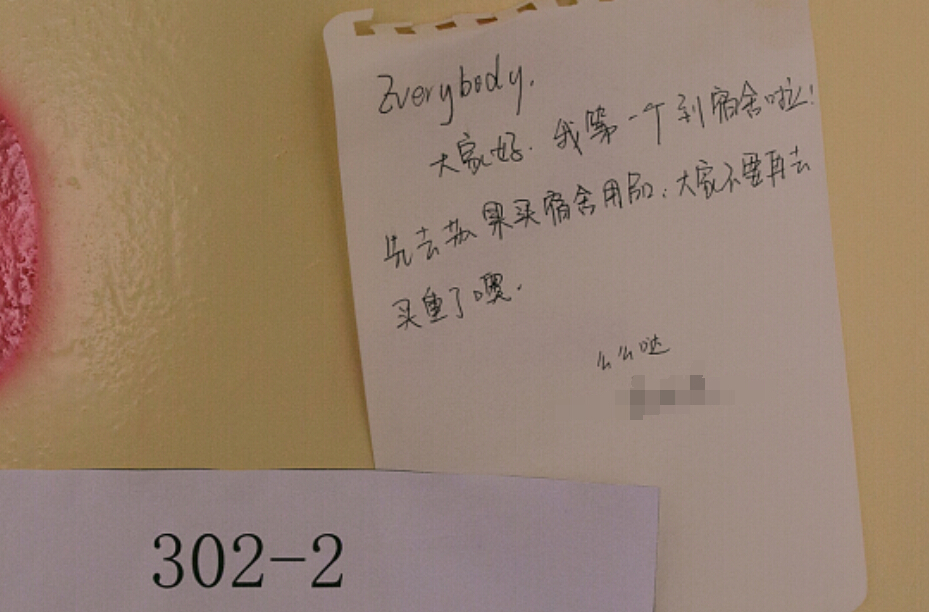 Everybody.
大家好.我第一个到宿舍啦!
先去苏果买宿舍用品,大家不要再去
买重了噢.
么么哒
302-2